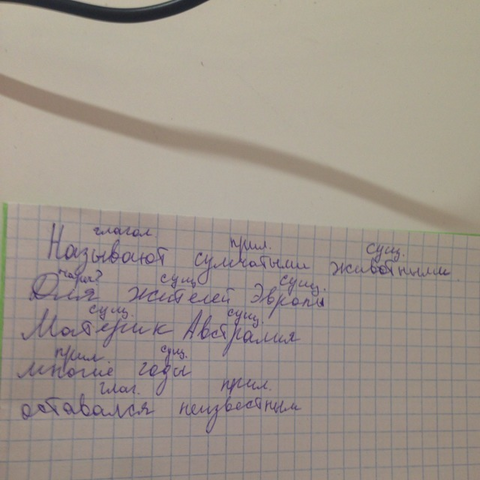 глагол прил. сущ.
Называют сумчатыми животными
сущ. сущ.
Для жителей Европы
сущ. сущ.
Материк Австралия
прил. сущ.
многие годы
глаг. прил.
оставался неизвестным